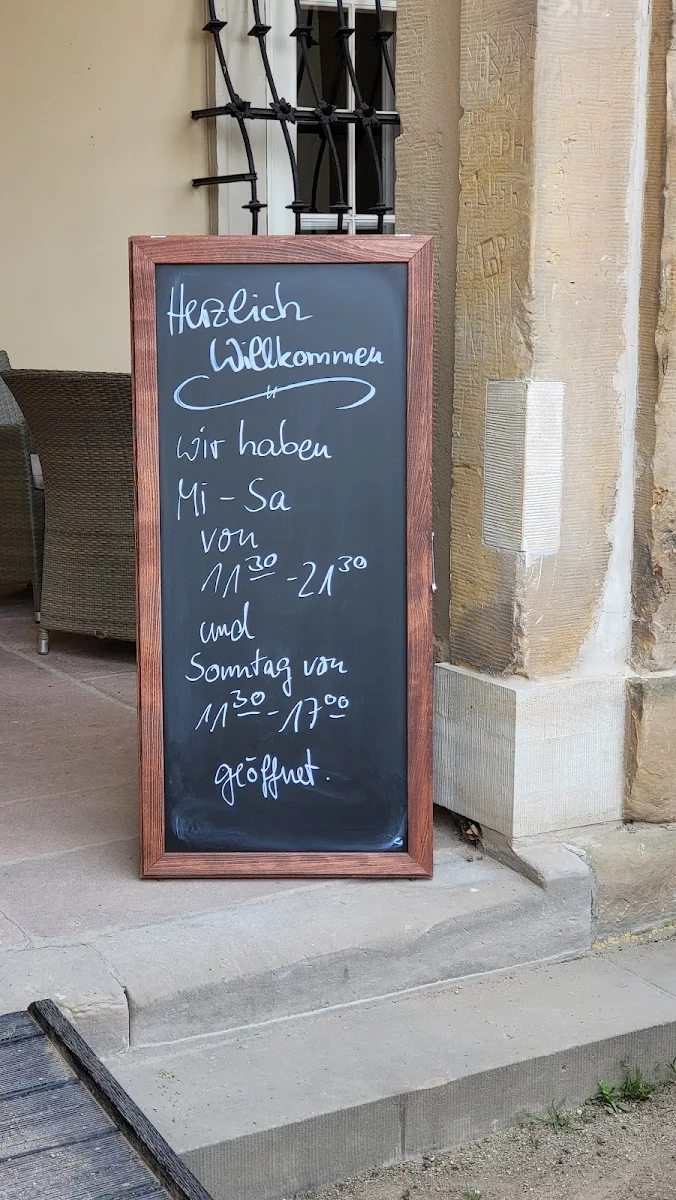 Herzlich
Willkommen
wir haben
Mi - Sa
von
11³⁰ - 21³⁰
und
Sonntag von
11³⁰ - 17⁰⁰
geöffnet.